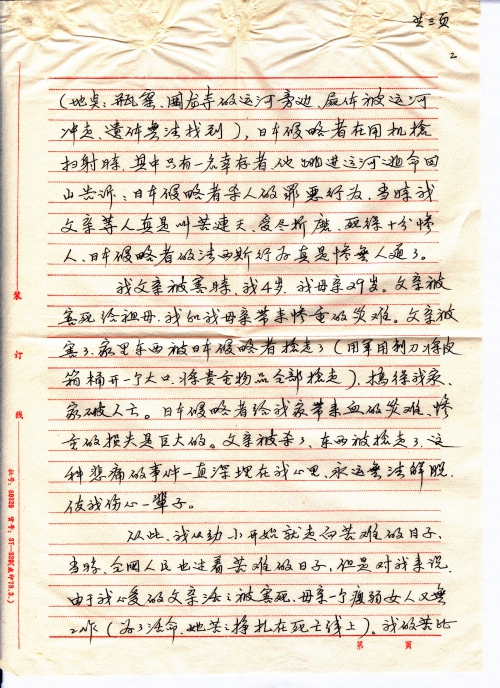 共三页
2
(地点:瓶窑、国龙寺的运河旁边、尸体被运河
冲走、遗体无法找到),日本侵略者在用机枪
扫射时、其中只有一名幸存者、他跳进运河逃命回
山告诉:日本侵略者杀人的罪恶行为,当时我
父亲等人真是叫苦连天、受尽折磨、死得十分惨
人、日本侵略者的法西斯行为真是惨无人道了。
我父亲被害时、我4岁、我母亲29岁。父亲被
害死给祖母、我和我母亲带来惨重的灾难。父亲被
害了、家里东西被日本侵略者抢走了(用军用刺刀将皮
箱桶开一个大口、将贵重物品全部抢走),搞得我家、
家破人亡。日本侵略者给我家带来血的灾难、惨
重的损失是巨大的。父亲被杀了、东西被抢走了、这
种悲痛的事件一直深埋在我心里、永远无法解脱、
使我伤心一辈子。
从此、我从幼小开始就走向苦难的日子、
当时、全国人民也过着苦难的日子,但是对我来说、
由于我心爱的父亲活活被害死、母亲一个瘦弱女人又无
工作(为了活命、她苦苦挣扎在死亡线上)。我的苦比
装
订
线
第 页